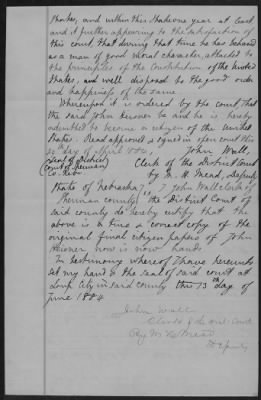 States, and within this State one year at least
and it further appearing to the satisfaction of
this court, that during that time he has behaved
as a man of good moral character, attached to
the principles of the Constitution of the United
States, and well disposed to the good order
and happiness of the same
Whereupon it is ordered by the court, that
the said John be and he is hereby
admitted to become a citizen of the United
States. Read approved & signed in open court this
day of April 1884, John Wall,
Seal of District Clerk of the District Court
Court Sherman by M. H. Mead, Deputy
Co. Neb.
State of Nebraska, I John Wall Clerk of
Sherman county, the District Court of
said county do hereby certify that the
above is a true & correct copy of the
original final citizen papers of John
now is my hands
In testimony whereof I have hereunto
set my hand & the seal of said court at
Loup City in said county this 13th day of
June 1884
John Wall
Clerk of the Dist. Court
By M. H. Mead
Deputy